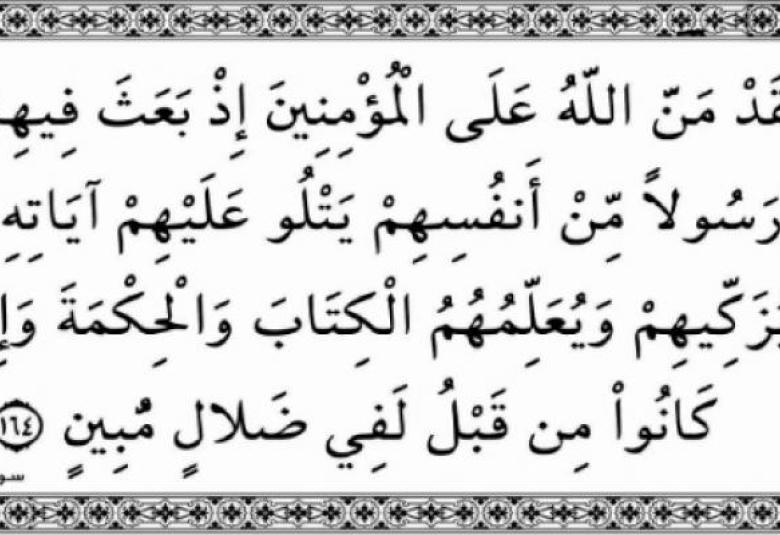 قَدْ مَنَّ اللّهُ عَلَى الْمُؤْمِنِينَ إِذْ بَعَثَ فِيهِ
رَسُولاً مِّنْ أَنفُسِهِمْ يَتْلُو عَلَيْهِمْ آيَاتِهِ
يُزَكِّيهِمْ وَيُعَلِّمُهُمُ الْكِتَابَ وَالْحِكْمَةَ وَإِ
كَانُواْ مِن قَبْلُ لَفِي ضَلالٍ مُّبِينٍ ١٦٤